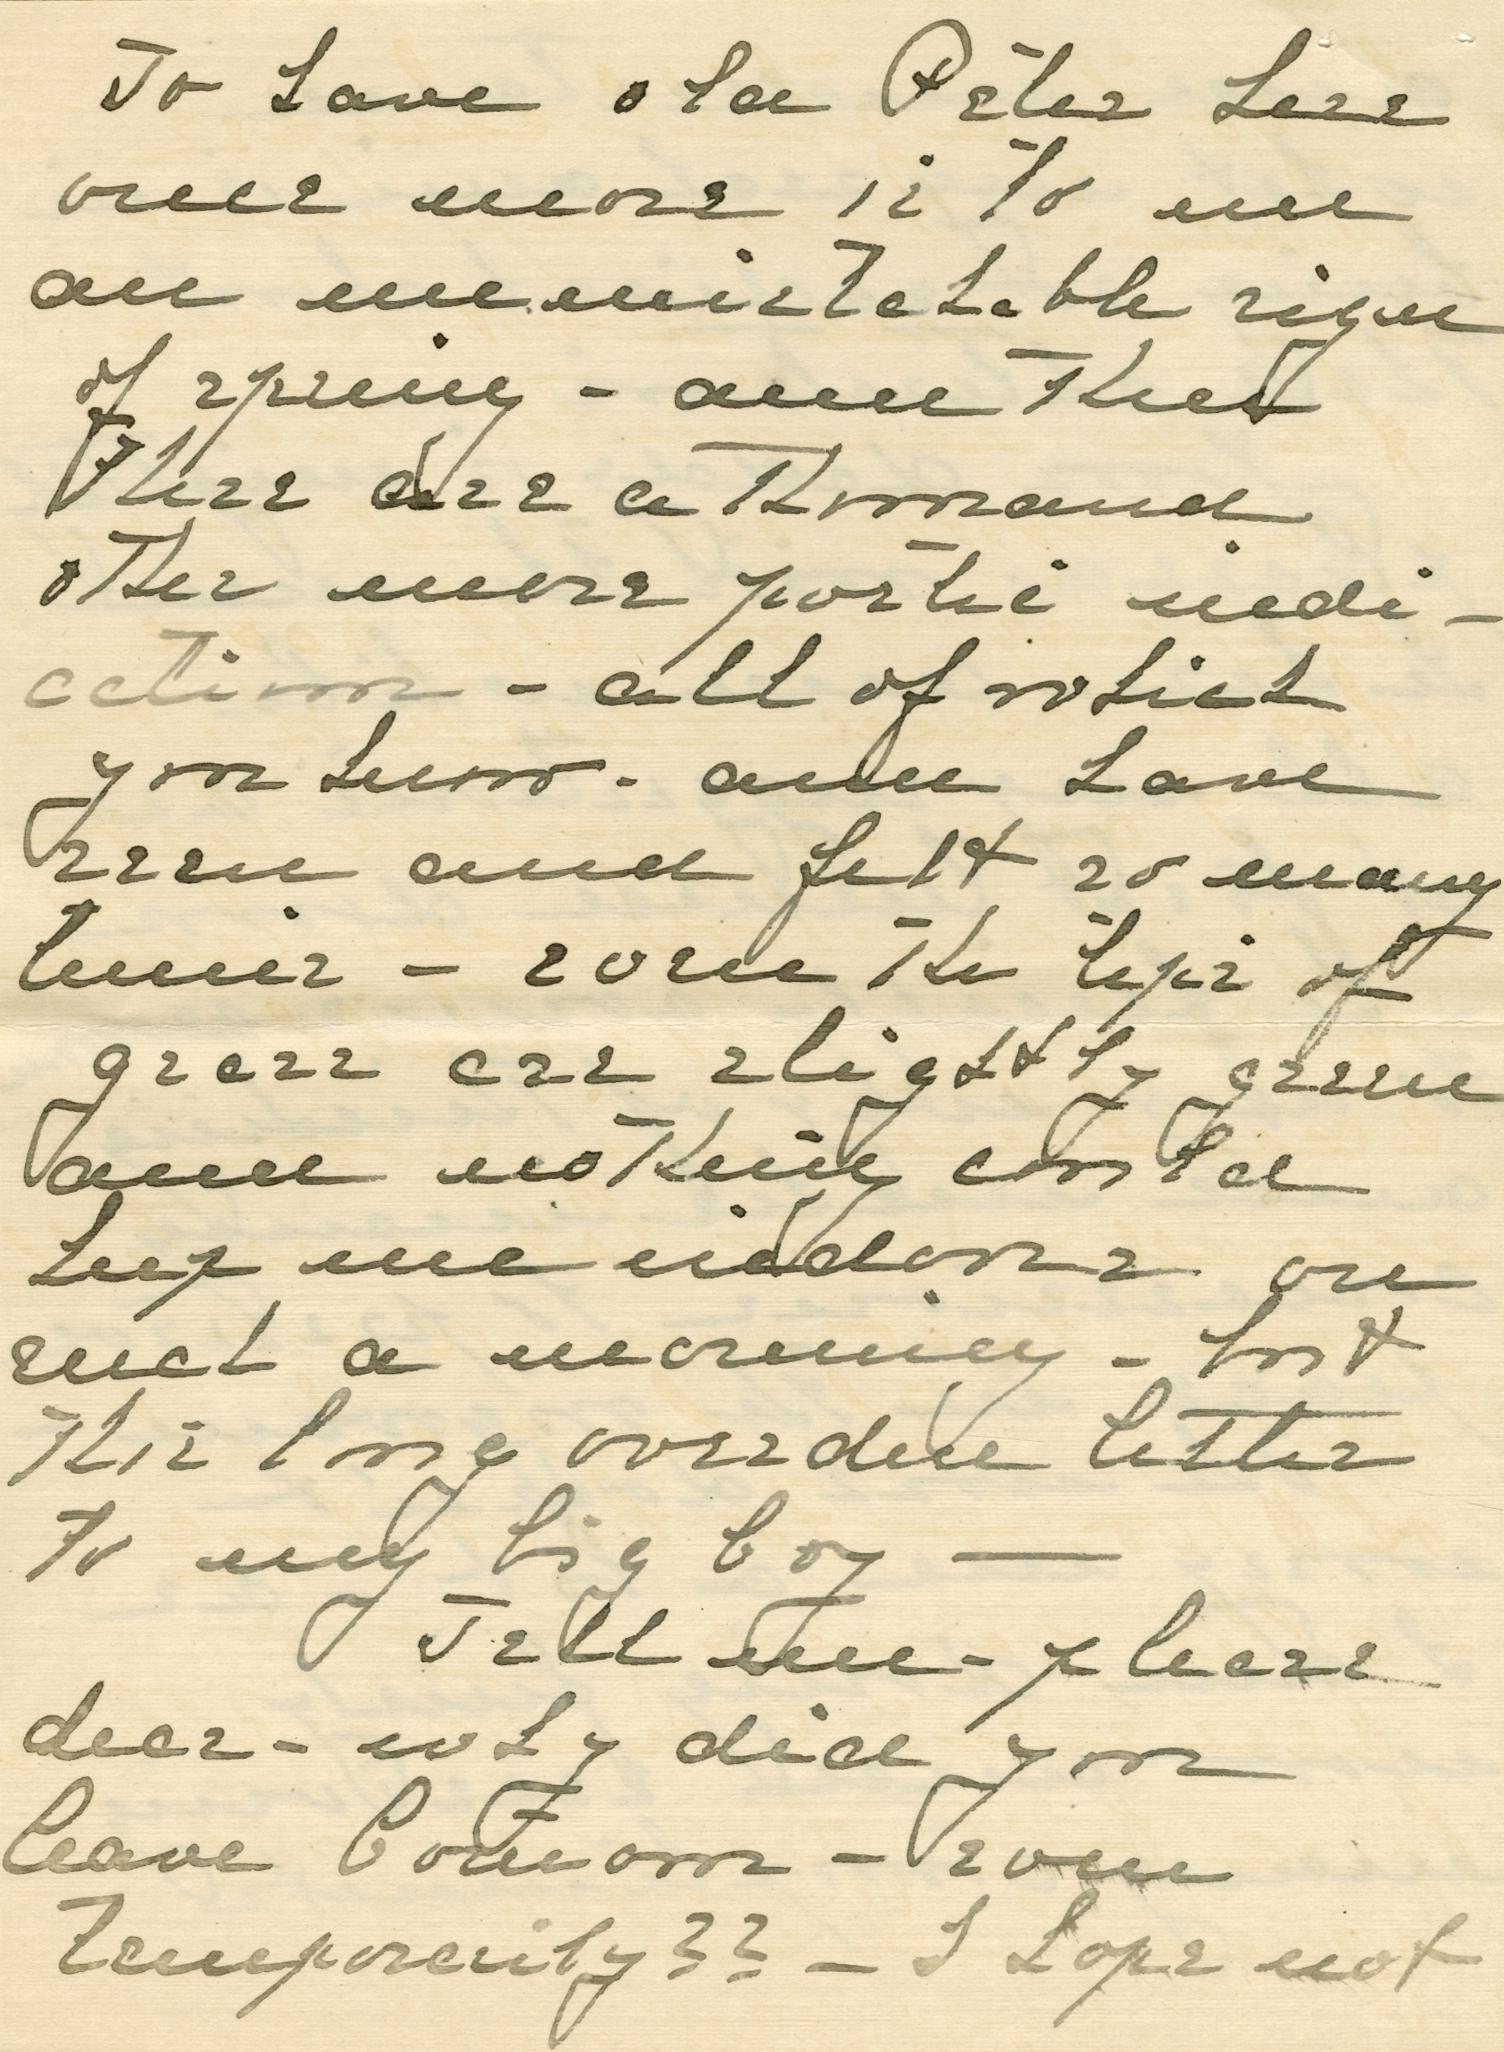 To have old Peter here
once more is to me
an unmistakable sign
of spring - and then
there are a thousand
other more poetic indi-
cations - all of which
you know - and have
seen and felt so many
times - some the tips of
grass are slightly green
and nothing could
keep me indoors on
such a morning - but
this long overdue letter
to my big boy —
Tell me - please
dear - why did you
leave - some
temporarily?? - I hope not